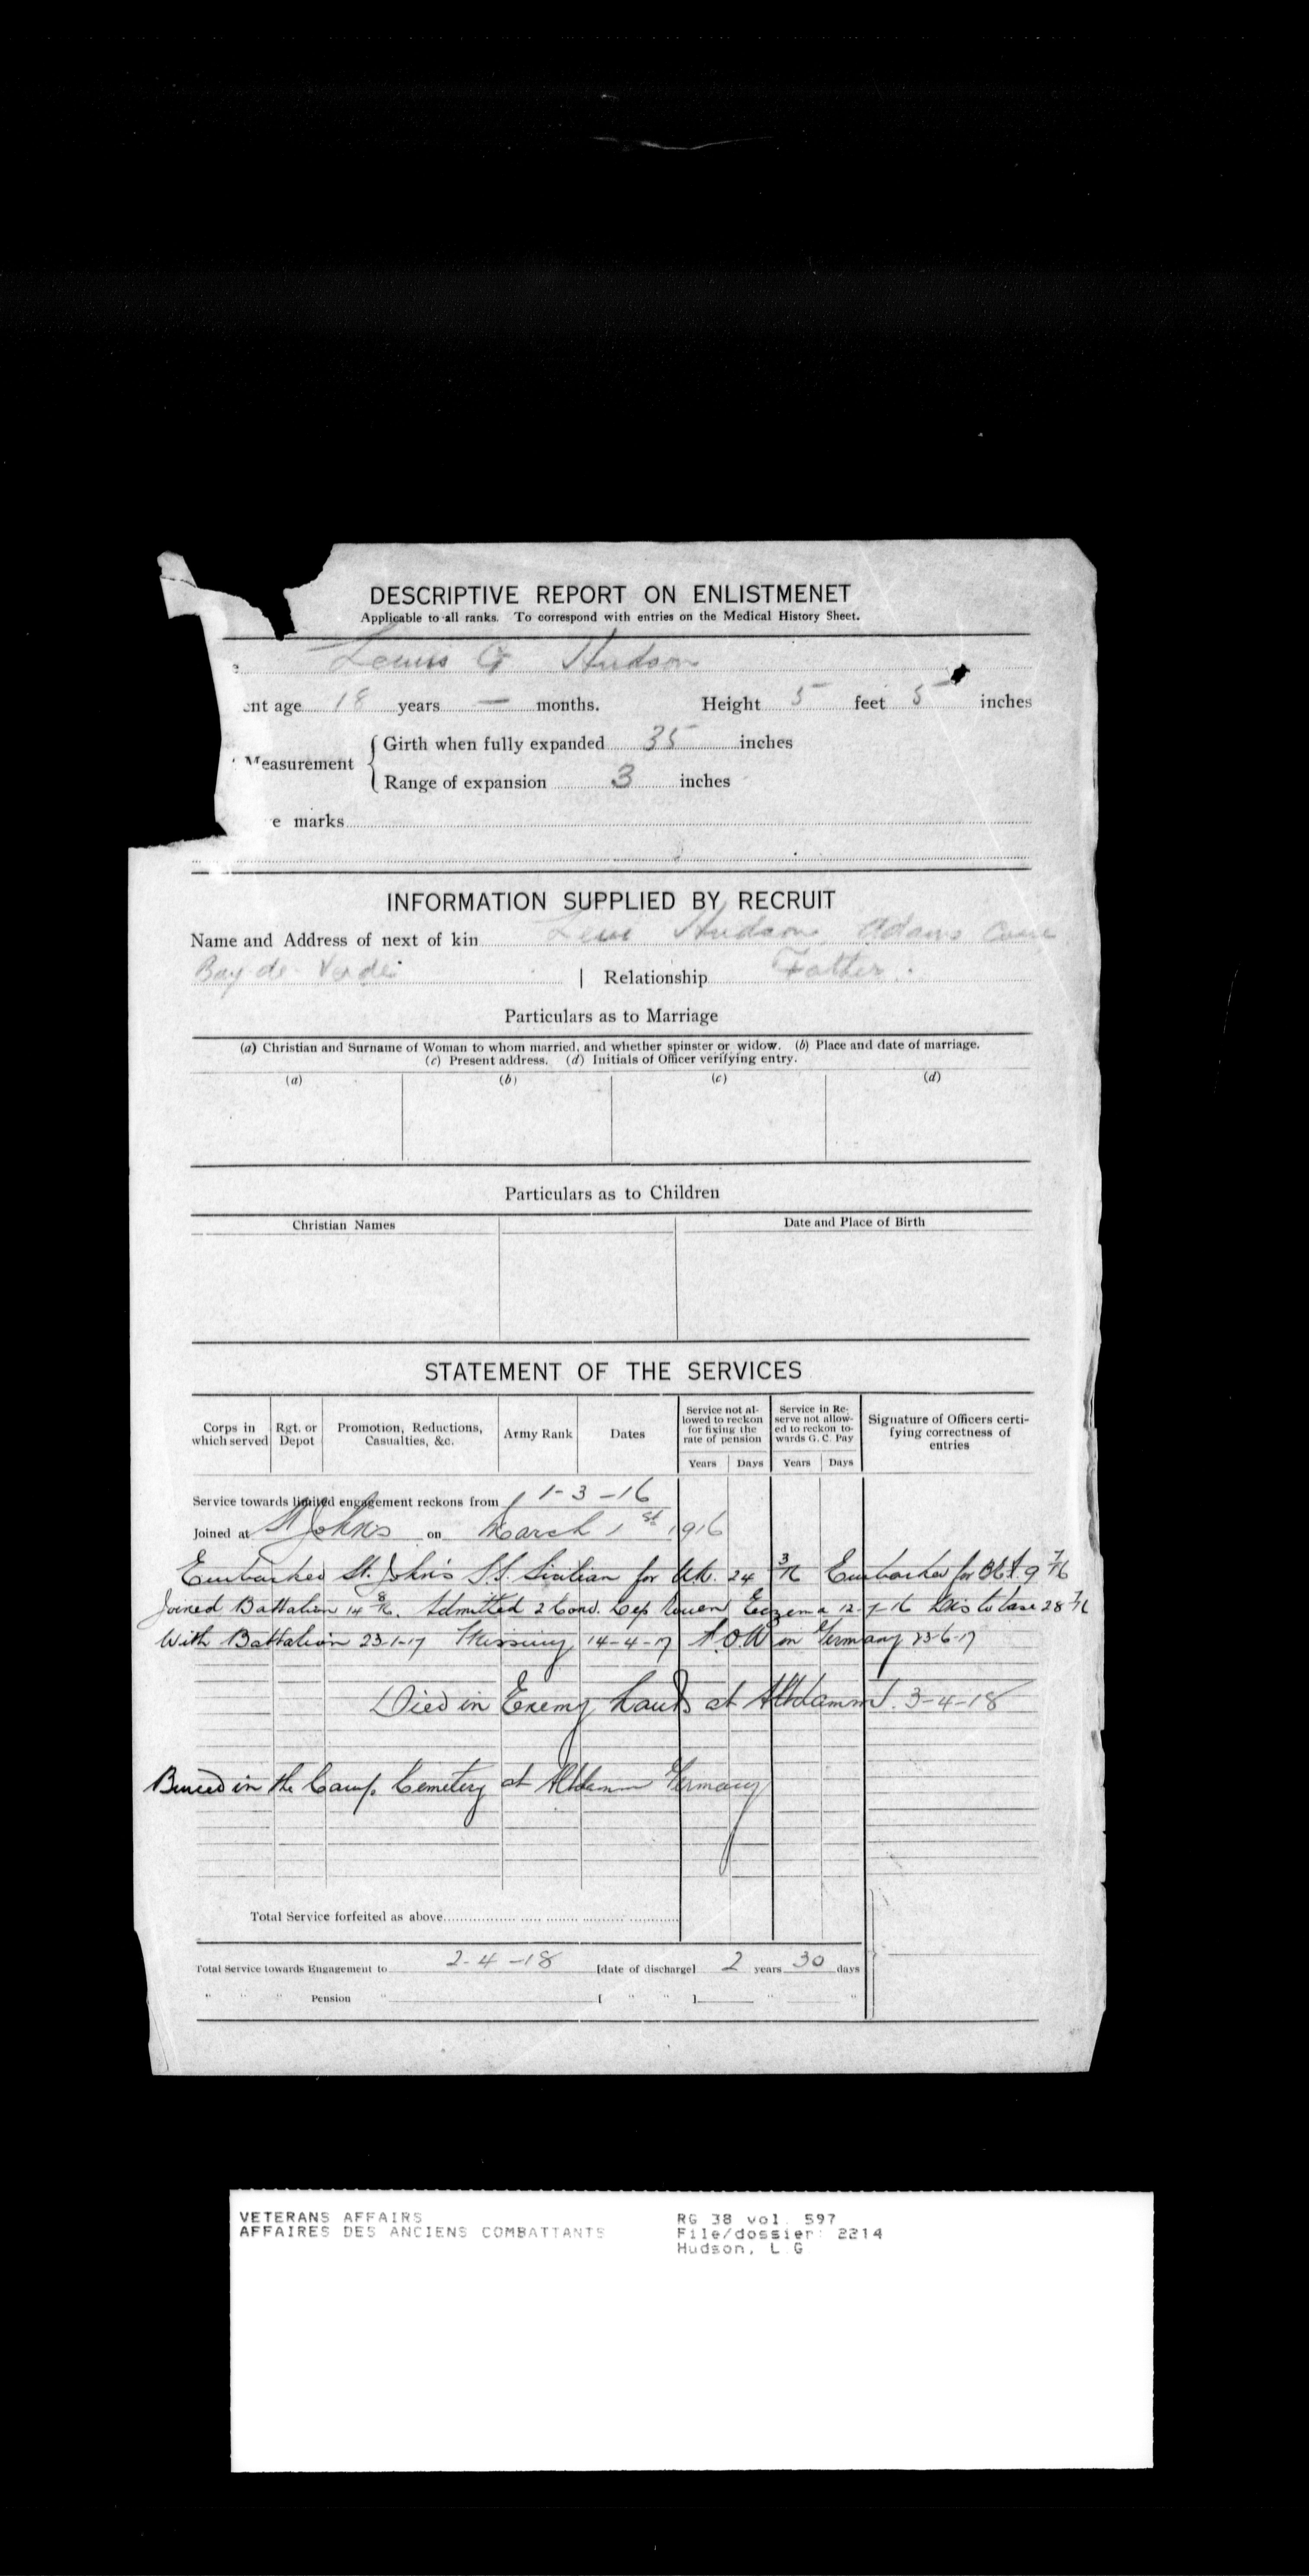 DESCRIPTIVE REPORT ON ENLISTMENET
Applicable to all ranks. To correspond with entries on the Medical History Sheet.
e Lewis G Hudson
ent age 18 years — months. Height 5 feet 5 inches
Measurement
Girth when fully expanded 35 inches
Range of expansion 3 inches
e marks
INFORMATION SUPPLIED BY RECRUIT
Name and Address of next of kin Levi Hudson, Adams Cove
Bay de Verde | Relationship Father.
Particulars as to Marriage
(a) Christian and Surname of Woman to whom married, and whether spinster or widow. (b) Place and date of marriage.
(c) Present address. (d) Initials of Officer verifying entry.
(a) (b) (c) (d)
Particulars as to Children
Christian Names Date and Place of Birth
STATEMENT OF THE SERVICES
Corps in which served Rgt. or Depot Promotion, Reductions, Casualties, &c. Army Rank Dates Service not allowed to reckon for fixing the rate of pension Service in Reserve not allowed to reckon towards G. C. Pay Signature of Officers certifying correctness of entries
Years Days Years Days
Service towards limited engagement reckons from 1-3-16
Joined at St John's on March 1st 1916
Embarked St. John's S.S. Sicilian for UK. 24 3/16 Embarked for 9 7/16
Joined Battalion 14 8/16. Admitted 2 Conv. Dep Rouen Eczema 12-7-16 Dis to base 28 7/16
With Battalion 23-1-17 Missing 14-4-17 P.O.W in Germany 23-6-17
Died in Enemy hands at Altdamm. 3-4-18
Buried in the Camp Cemetery at Altdamm Germany
Total Service forfeited as above
Total Service towards Engagement to 2-4-18 [date of discharge] 2 years 30 days
" " " Pension " [ " " ] " "
VETERANS AFFAIRS RG 38 vol. 597
AFFAIRES DES ANCIENS COMBATTANTS File/dossier: 2214
Hudson, L G